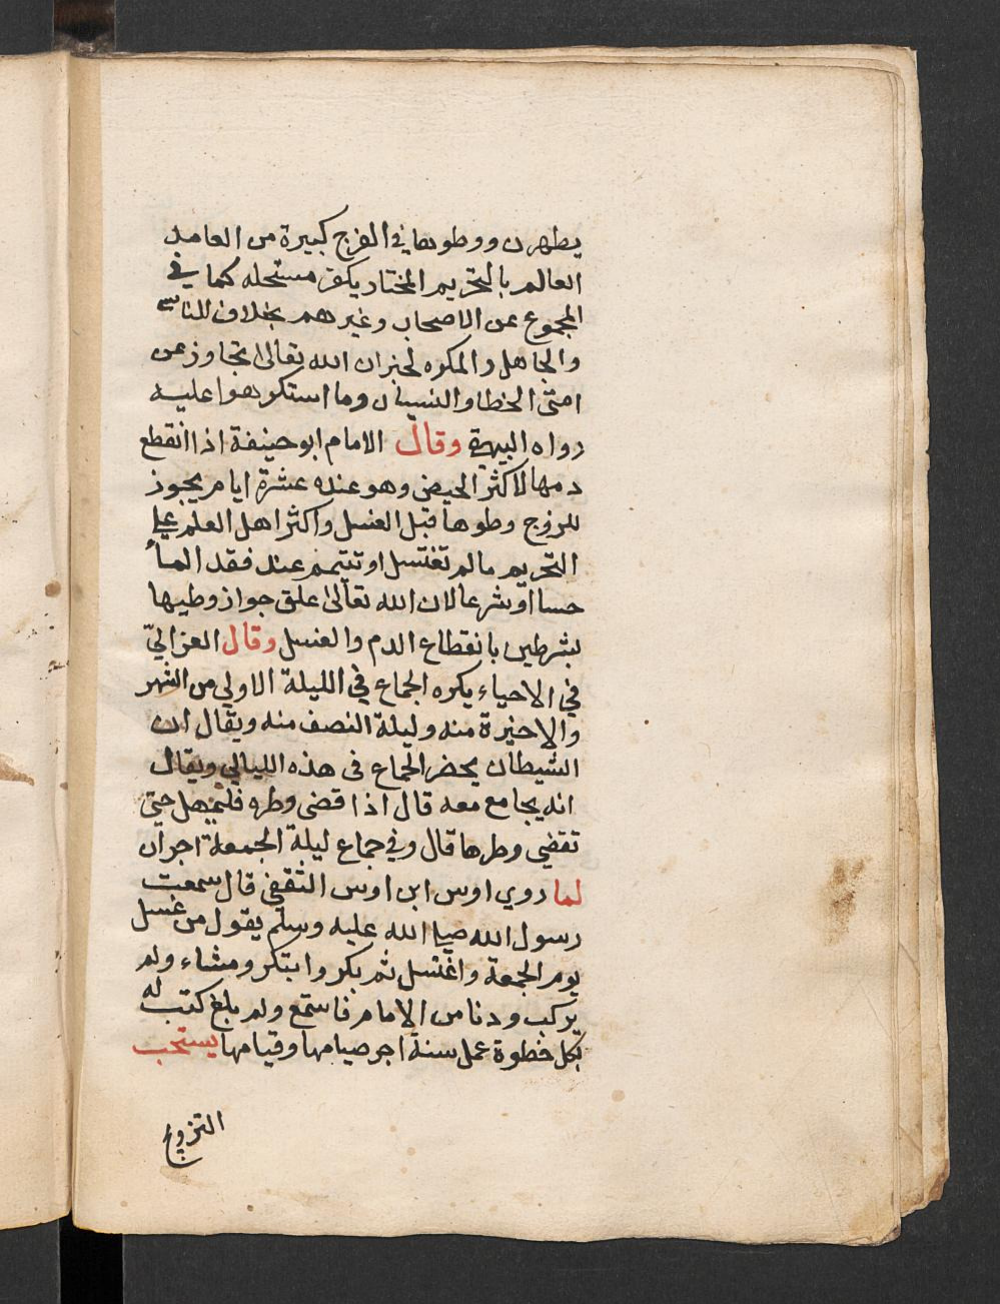 يطهرن ووطوها في الفرج كبيرة من العامد
العالم بالتحريم المختار يكفر مستحله كما في
المجموع عن الاصحاب وغيرهم بخلاف الناسي
والجاهل والمكره لخبر ان الله تعالى تجاوز عن
امتي الخطا والنسيان وما استكرهوا عليه
رواه البيهقي وقال الامام ابو حنيفة اذا انقطع
دمها لاكثر الحيض وهو عنده عشرة ايام يجوز
للزوج وطوها قبل الغسل واكثر اهل العلم على
التحريم مالم تغتسل او تتيمم عند فقد الماء
حسا او شرعا لان الله تعالى علق جواز وطيها
بشرطين بانقطاع الدم والغسل وقال الغزالي
في الاحياء يكره الجماع في الليلة الاولي من الشهر
والاخيرة منه وليلة النصف منه ويقال ان
الشيطان يحضر الجماع في هذه الليالي ويقال
انه يجامع معه قال اذا قضى وطره فليمهل حتى
تقضي وطرها قال وفي جماع ليلة الجمعة اجران
لما روي اوس ابن اوس الثقفي قال سمعت
رسول الله صلى الله عليه وسلم يقول من غسل
يوم الجمعة واغتسل ثم بكر وابتكر ومشاء ولم
يركب ودنا من الامام فاستمع ولم يلغ كتب له
بكل خطوة عمل سنة اجر صيامها وقيامها يستحب
التزويج